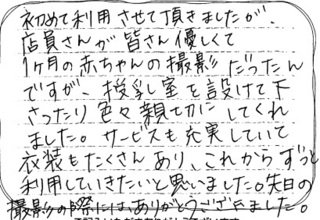 初めて利用させて頂きましたが、
店員さんが皆さん優しくて
1ヶ月の赤ちゃんの撮影だったん
ですが、授乳室を設けて下
さったり色々親切にしてくれ
ました。サービスも充実していて
衣装もたくさんあり、これからずっと
利用していきたいと思いました。先日の
撮影の際にはありがとうございました。